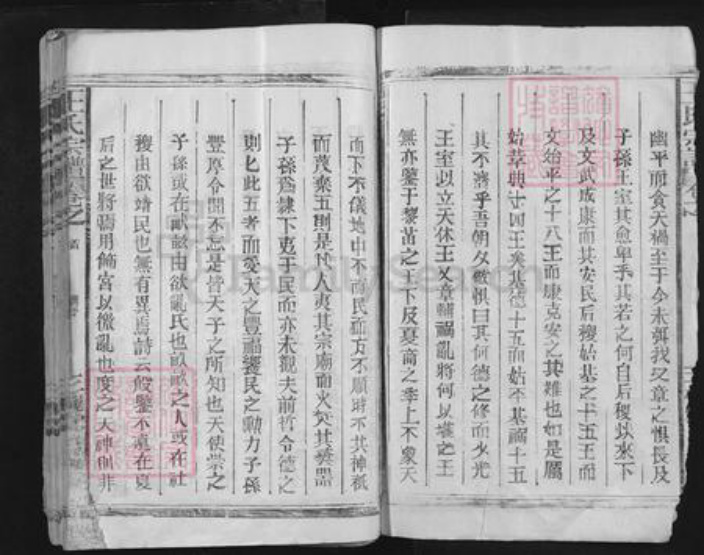 幽平而貪天禍至于今未弭我又章之懼長及
子孫王室其愈卑乎其若之何自后稷以來下
及文武成康而其安民后稷始基之十五王而
文始平之十八王而康克安之其難也如是厲
始革典十四王矣基德十五而始平基禍十五
其不濟乎吾朝夕儆懼曰其何德之修而少光
王室以立天休王又章輔禍亂將何以堪之王
無亦鑒于黎苗之王下及夏商之季上不象天
而下不儀地中不和民而方不順時不共神祇
而蔑棄五則是以人夷其宗廟而火焚其彝器
子孫爲隸下夷于民而亦未觀夫前哲令德之
則此五者而受天之豐福饗民之勳力子孫
豐厚令聞不忘是皆天子之所知也天使崇之
子孫或在畎畝由欲亂民也畎畝之人或在社
稷由欲靖民也無有異焉詩云殷鑒不遠在夏
后之世將焉用飾宮以徼亂也度之天神則非
王氏宗譜 卷之
FamilySearch